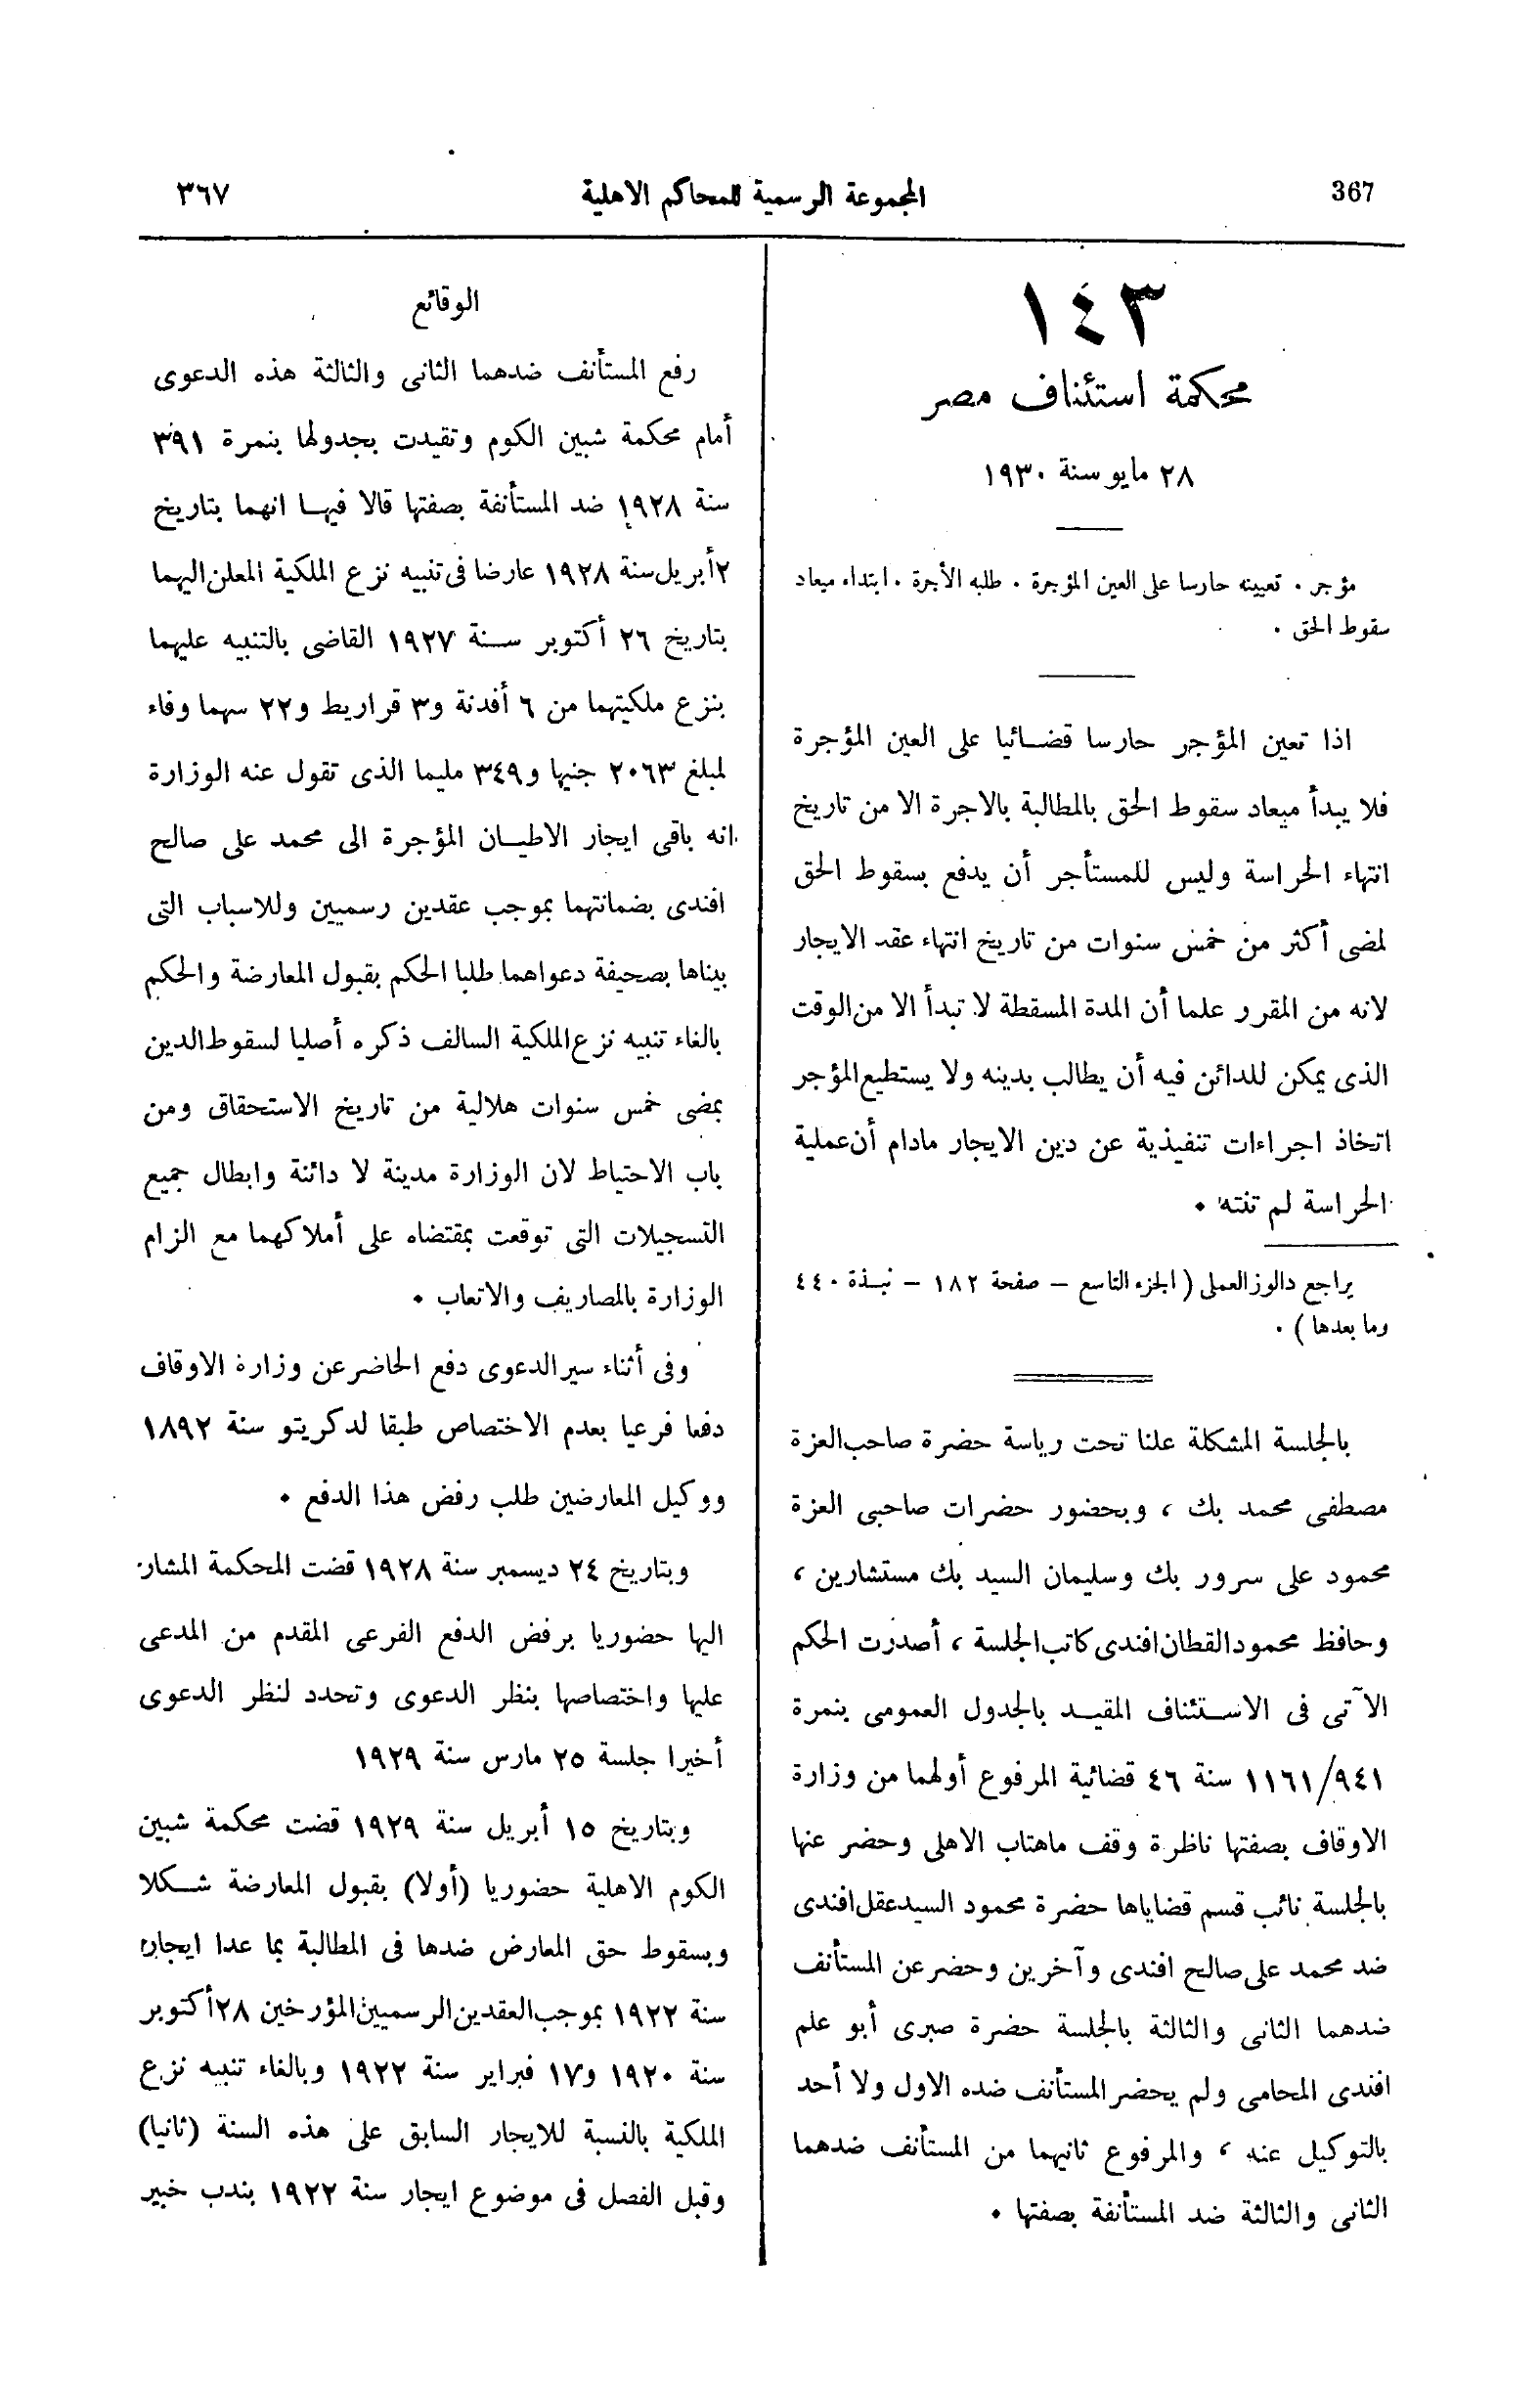 367
المجموعة الرسمية للمحاكم الاهلية
٣٦٧
١٤٣
محكمة استئناف مصر
٢٨ مايو سنة ١٩٣٠
مؤجر . تعيينه حارسا على العين المؤجرة . طلبه الأجرة . ابتداء ميعاد
سقوط الحق .
اذا تعين المؤجر حارسا قضائيا على العين المؤجرة
فلا يبدأ ميعاد سقوط الحق بالمطالبة بالاجرة الا من تاريخ
انتهاء الحراسة وليس للمستأجر أن يدفع بسقوط الحق
لمضى أكثر من خمس سنوات من تاريخ انتهاء عقد الايجار
لانه من المقرر علما أن المدة المسقطة لا تبدأ الا من الوقت
الذى يمكن للدائن فيه أن يطالب بدينه ولا يستطيع المؤجر
اتخاذ اجراءات تنفيذية عن دين الايجار مادام أن عملية
الحراسة لم تنته .
يراجع دالوز العملى ( الجزء التاسع — صفحة ١٨٢ — نبذة ٤٤٠
وما بعدها ) .
بالجلسة المشكلة علنا تحت رياسة حضرة صاحب العزة
مصطفى محمد بك ، وبحضور حضرات صاحبى العزة
محمود على سرور بك وسليمان السيد بك مستشارين ،
وحافظ محمود القطان افندى كاتب الجلسة ، أصدرت الحكم
الآتى فى الاستئناف المقيد بالجدول العمومى بنمرة
١١٦١/٩٤١ سنة ٤٦ قضائية المرفوع أولهما من وزارة
الاوقاف بصفتها ناظرة وقف ماهتاب الاهلى وحضر عنها
بالجلسة نائب قسم قضاياها حضرة محمود السيد عقل افندى
ضد محمد على صالح افندى وآخرين وحضر عن المستأنف
ضدهما الثانى والثالثة بالجلسة حضرة صبرى أبو علم
افندى المحامى ولم يحضر المستأنف ضده الاول ولا أحد
بالتوكيل عنه ، والمرفوع ثانيهما من المستأنف ضدهما
الثانى والثالثة ضد المستأنفة بصفتها .
الوقائع
رفع المستأنف ضدهما الثانى والثالثة هذه الدعوى
أمام محكمة شبين الكوم وتقيدت بجدولها بنمرة ٣٩١
سنة ١٩٢٨ ضد المستأنفة بصفتها قالا فيها انهما بتاريخ
٢ أبريل سنة ١٩٢٨ عارضا فى تنبيه نزع الملكية المعلن اليهما
بتاريخ ٢٦ أكتوبر سنة ١٩٢٧ القاضى بالتنبيه عليهما
بنزع ملكيتهما من ٦ أفدنة و٣ قراريط و٢٢ سهما وفاء
لمبلغ ٢٠٦٣ جنيها و٣٤٩ مليما الذى تقول عنه الوزارة
انه باقى ايجار الاطيان المؤجرة الى محمد على صالح
افندى بضمانتهما بموجب عقدين رسميين وللاسباب التى
بيناها بصحيفة دعواهما طلبا الحكم بقبول المعارضة والحكم
بالغاء تنبيه نزع الملكية السالف ذكره أصليا لسقوط الدين
بمضى خمس سنوات هلالية من تاريخ الاستحقاق ومن
باب الاحتياط لان الوزارة مدينة لا دائنة وابطال جميع
التسجيلات التى توقعت بمقتضاه على أملاكهما مع الزام
الوزارة بالمصاريف والاتعاب .
وفى أثناء سير الدعوى دفع الحاضر عن وزارة الاوقاف
دفعا فرعيا بعدم الاختصاص طبقا لدكريتو سنة ١٨٩٢
ووكيل المعارضين طلب رفض هذا الدفع .
وبتاريخ ٢٤ ديسمبر سنة ١٩٢٨ قضت المحكمة المشار
اليها حضوريا برفض الدفع الفرعى المقدم من المدعى
عليها واختصاصها بنظر الدعوى وتحدد لنظر الدعوى
أخيرا جلسة ٢٥ مارس سنة ١٩٢٩
وبتاريخ ١٥ أبريل سنة ١٩٢٩ قضت محكمة شبين
الكوم الاهلية حضوريا (أولا) بقبول المعارضة شكلا
وبسقوط حق المعارض ضدها فى المطالبة بما عدا ايجار
سنة ١٩٢٢ بموجب العقدين الرسميين المؤرخين ٢٨ أكتوبر
سنة ١٩٢٠ و١٧ فبراير سنة ١٩٢٢ وبالغاء تنبيه نزع
الملكية بالنسبة للايجار السابق على هذه السنة (ثانيا)
وقبل الفصل فى موضوع ايجار سنة ١٩٢٢ بندب خبير